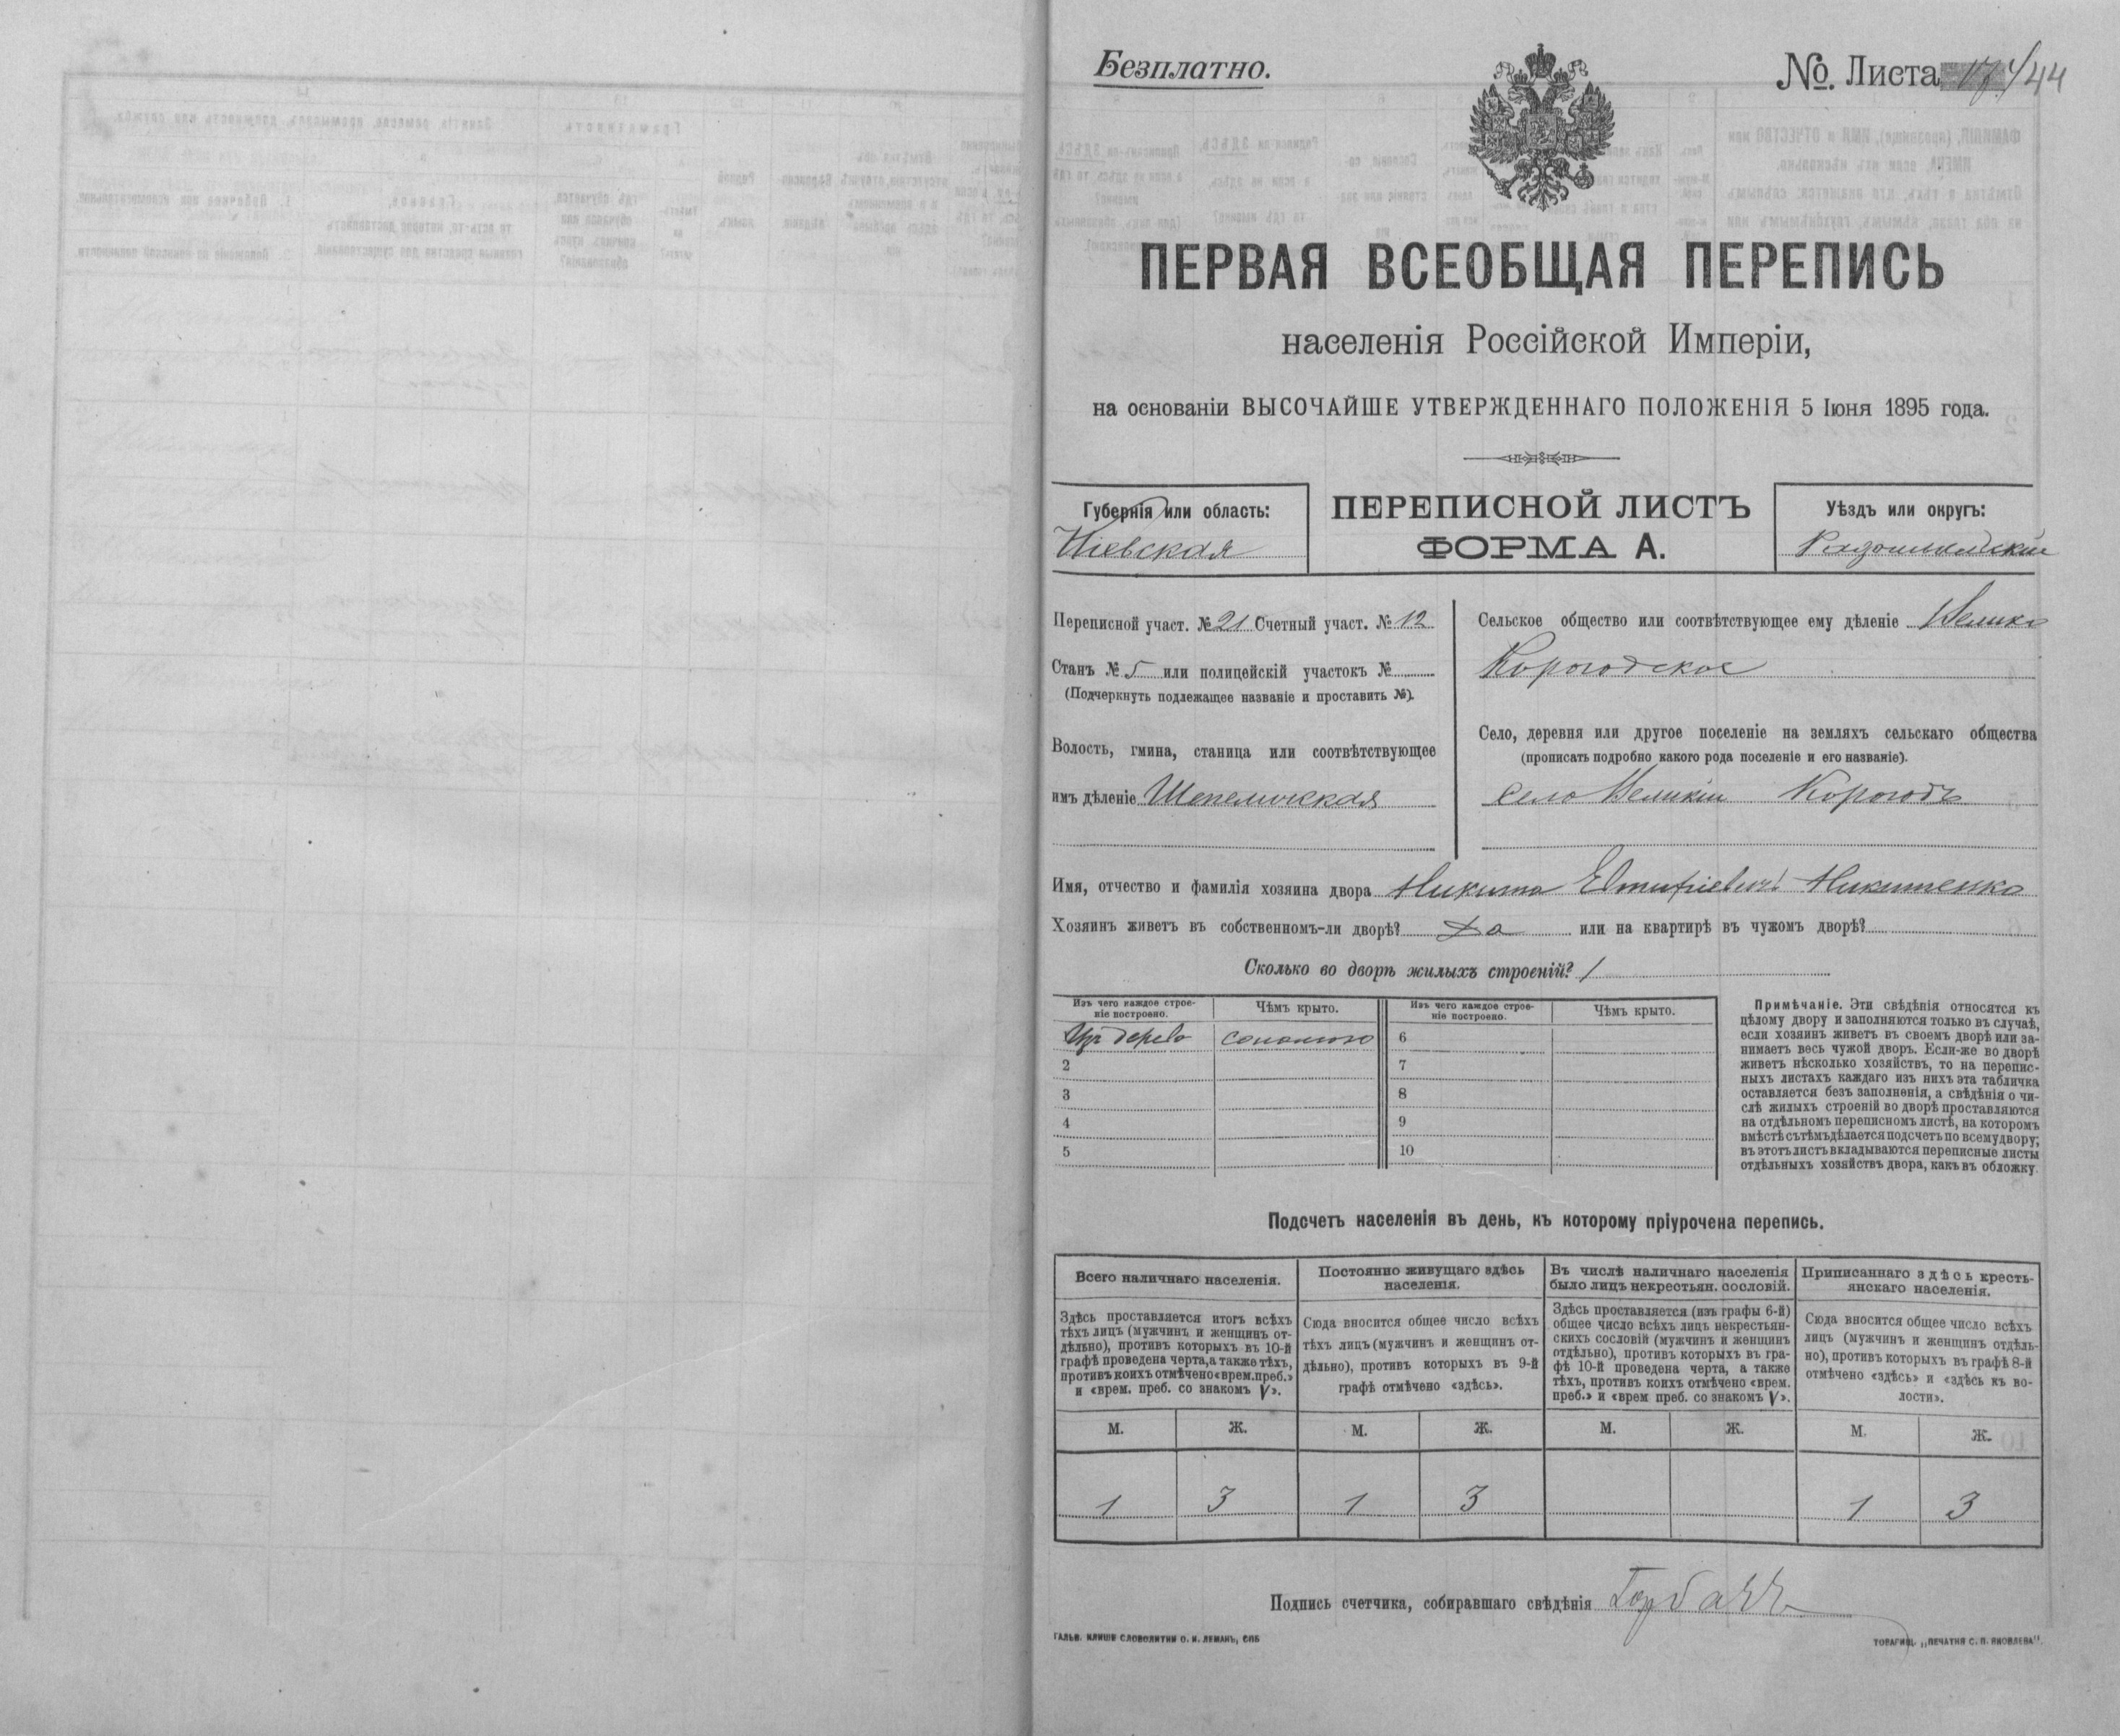 Безплатно.
№. Листа 144
ПЕРВАЯ ВСЕОБЩАЯ ПЕРЕПИСЬ
населенія Россійской Имперіи,
на основаніи ВЫСОЧАЙШЕ УТВЕРЖДЕННАГО ПОЛОЖЕНІЯ 5 Іюня 1895 года.
Губернія или область:
Кіевская
ПЕРЕПИСНОЙ ЛИСТЪ
ФОРМА А.
Уѣздъ или округъ:
Радомысльскій
Переписной участ. № 21 Счетный участ. № 12
Станъ № 5 или полицейскій участокъ №
(Подчеркнуть подлежащее названіе и проставить №).
Волость, гмина, станица или соотвѣтствующее
имъ дѣленіе Шепеличская
Сельское общество или соотвѣтствующее ему дѣленіе Велико
Корогодское
Село, деревня или другое поселеніе на земляхъ сельскаго общества
(прописать подробно какого рода поселеніе и его названіе).
село Великій Корогодъ
Имя, отчество и фамилія хозяина двора Никита Евтифіевичъ Никитенко
Хозяинъ живетъ въ собственномъ-ли дворѣ? Да или на квартирѣ въ чужомъ дворѣ?
Сколько во дворѣ жилыхъ строеній? 1
Изъ чего каждое строе-
ніе построено.
Чѣмъ крыто.
Изъ чего каждое строе-
ніе построено.
Чѣмъ крыто.
Изъ дерева соломою 6
2 7
3 8
4 9
5 10
Примѣчаніе. Эти свѣдѣнія относятся къ
цѣлому двору и заполняются только въ случаѣ,
если хозяинъ живетъ въ своемъ дворѣ или за-
нимаетъ весь чужой дворъ. Если-же во дворѣ
живетъ нѣсколько хозяйствъ, то на перепис-
ныхъ листахъ каждаго изъ нихъ эта табличка
оставляется безъ заполненія, а свѣдѣнія о чи-
слѣ жилыхъ строеній во дворѣ проставляются
на отдѣльномъ переписномъ листѣ, на которомъ
вмѣстѣ съ тѣмъ дѣлается подсчетъ по всему двору;
въ этотъ листъ вкладываются переписные листы
отдѣльныхъ хозяйствъ двора, какъ въ обложку.
Подсчетъ населенія въ день, къ которому пріурочена перепись.
Всего наличнаго населенія.
Здѣсь проставляется итогъ всѣхъ
тѣхъ лицъ (мужчинъ и женщинъ от-
дѣльно), противъ которыхъ въ 10-й
графѣ проведена черта, а также тѣхъ,
противъ коихъ отмѣчено «врем. преб.»
и «врем. преб. со знакомъ V».
Постоянно живущаго здѣсь
населенія.
Сюда вносится общее число всѣхъ
тѣхъ лицъ (мужчинъ и женщинъ от-
дѣльно), противъ которыхъ въ 9-й
графѣ отмѣчено «здѣсь».
Въ числѣ наличнаго населенія
было лицъ некрестьян. сословій.
Здѣсь проставляется (изъ графы 6-й)
общее число всѣхъ лицъ некрестьян-
скихъ сословій (мужчинъ и женщинъ
отдѣльно), противъ которыхъ въ гра-
фѣ 10-й проведена черта, а также
тѣхъ, противъ коихъ отмѣчено «врем.
преб.» и «врем преб. со знакомъ V».
Приписаннаго здѣсь кресть-
янскаго населенія.
Сюда вносится общее число всѣхъ
лицъ (мужчинъ и женщинъ отдѣль-
но), противъ которыхъ въ графѣ 8-й
отмѣчено «здѣсь» и «здѣсь къ во-
лости».
М. Ж. М. Ж. М. Ж. М. Ж.
1 3 1 3 1 3
Подпись счетчика, собиравшаго свѣдѣнія Горбачъ
ГАЛЬВ. КЛИШЕ СЛОВОЛИТНИ О. И. ЛЕМАНЪ, СПБ
ТОВАРИЩ. „ПЕЧАТНЯ С. П. ЯКОВЛЕВА".